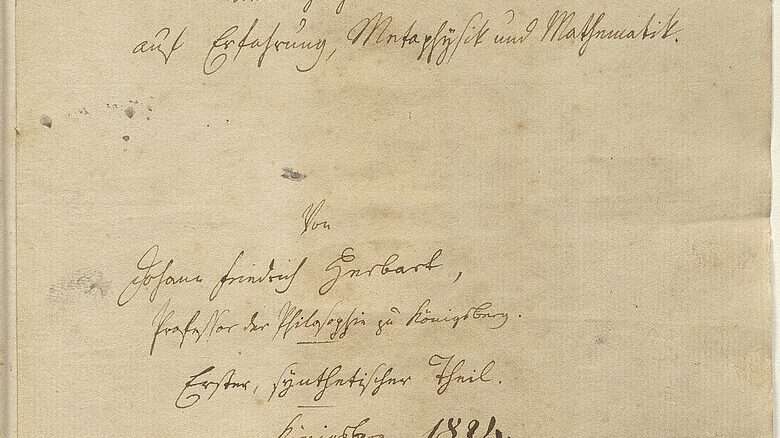 auf Erfahrung, Metaphysik und Mathematik.
Von
Johann Friedrich Herbart,
Professor der Philosophie zu Königsberg.
Erster, synthetischer Theil.
Königsberg 1824.